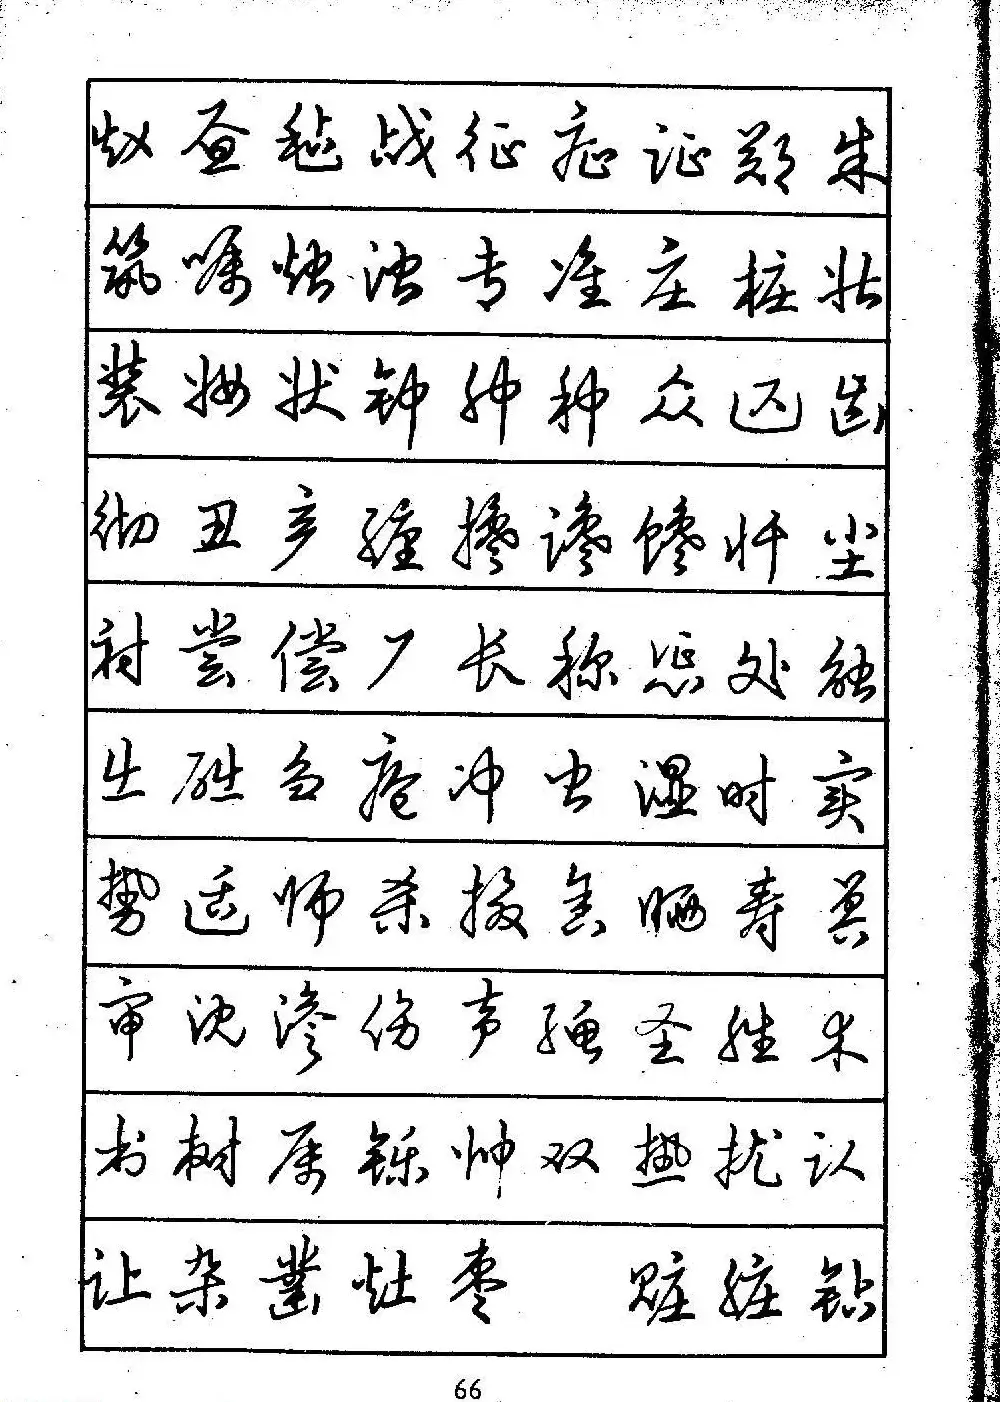 赵 昼 毡 战 征 症 证 郑 朱
筑 嘱 烛 浊 专 准 庄 桩 壮
装 妆 状 钟 肿 种 众 迟 齿
彻 丑 产 缠 搀 谗 馋 忏 尘
衬 尝 偿 厂 长 称 惩 处 触
出 础 刍 疮 冲 虫 湿 时 实
势 适 师 杀 摄 舍 晒 寿
审 沈 渗 伤 声 绳 圣 胜 术
书 树 属 铄 帅 双 热 扰 认
让 杂 凿 灶 枣 赃 脏 钻
66